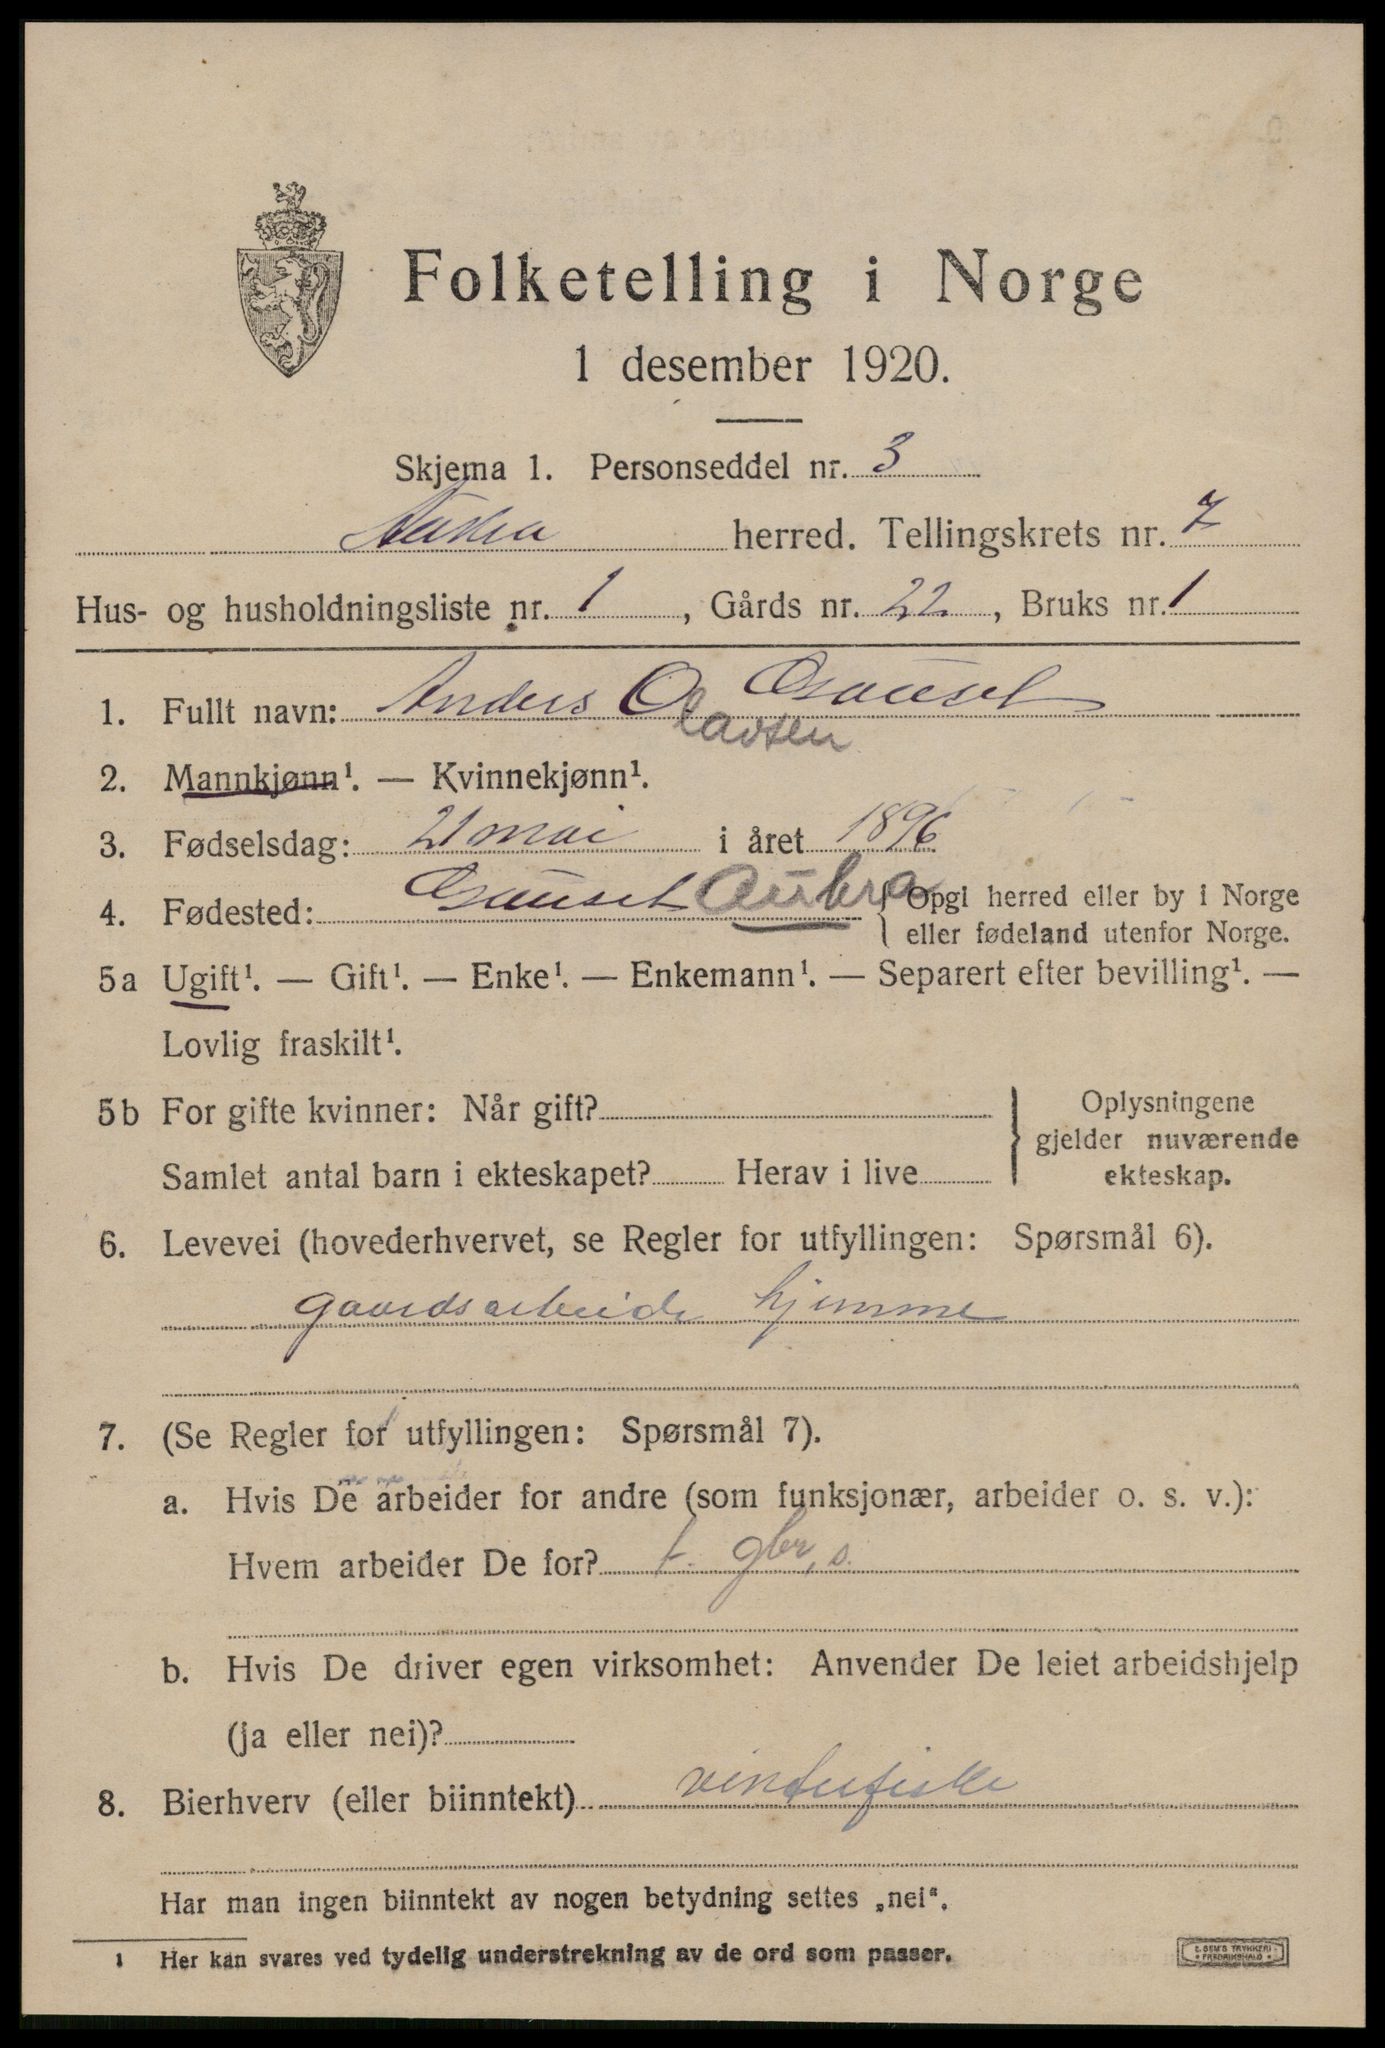 Folketelling i Norge
1 desember 1920.
Skjema 1. Personseddel nr. 3
herred. Tellingskrets nr. 7
Hus- og husholdningsliste nr. 1, Gårds nr. 22, Bruks nr. 1
1. Fullt navn: Anders O
lavsen
2. Mannkjønn¹. — Kvinnekjønn¹.
3. Fødselsdag: 21 mai i året 1896
4. Fødested: Aukra { Opgi herred eller by i Norge
eller fødeland utenfor Norge.
5a Ugift¹. — Gift¹. — Enke¹. — Enkemann¹. — Separert efter bevilling¹. —
Lovlig fraskilt¹.
5b For gifte kvinner: Når gift?
Samlet antal barn i ekteskapet? Herav i live
Oplysningene
gjelder nuværende
ekteskap.
6. Levevei (hovederhvervet, se Regler for utfyllingen: Spørsmål 6).
gaardsarbeide hjemme
7. (Se Regler for utfyllingen: Spørsmål 7).
a. Hvis De arbeider for andre (som funksjonær, arbeider o. s. v.):
Hvem arbeider De for? f. gbr. s.
b. Hvis De driver egen virksomhet: Anvender De leiet arbeidshjelp
(ja eller nei)?
8. Bierhverv (eller biinntekt) vinterfiske
Har man ingen biinntekt av nogen betydning settes „nei“.
1 Her kan svares ved tydelig understrekning av de ord som passer.
E. SEM'S TRYKKERI
FREDRIKSHALD